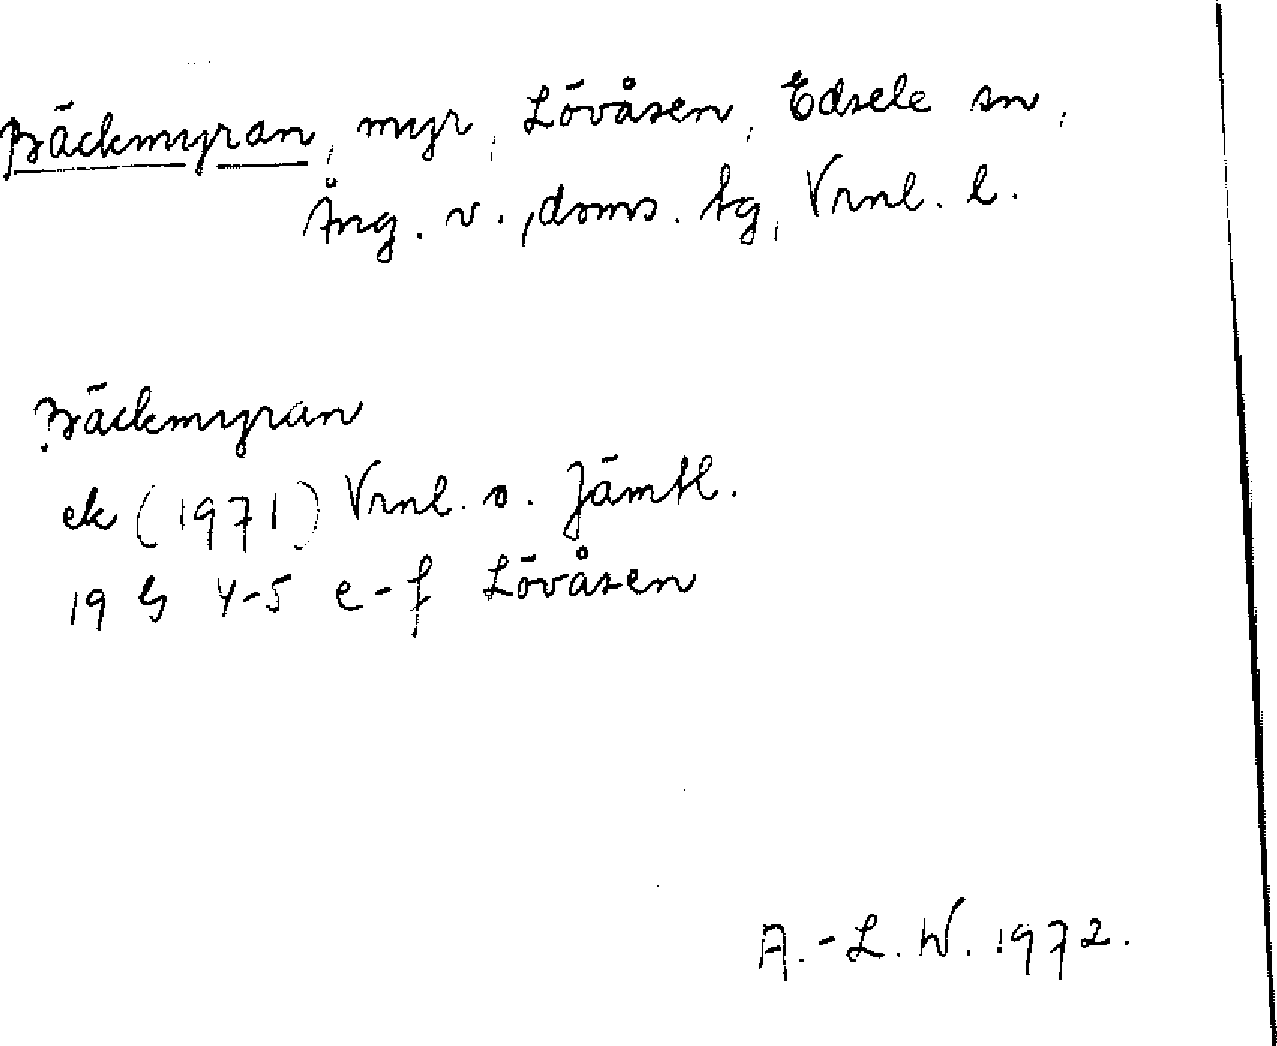 Bäckmyran, myr, Lövåsen, Edsele sn,
Ång. v., doms. tg, Vrnl. l.
Bäckmyran
ek (1971) Vrnl. o. Jämtl.
19 G 4-5 e-f Lövåsen
A.-L. W. 1972.